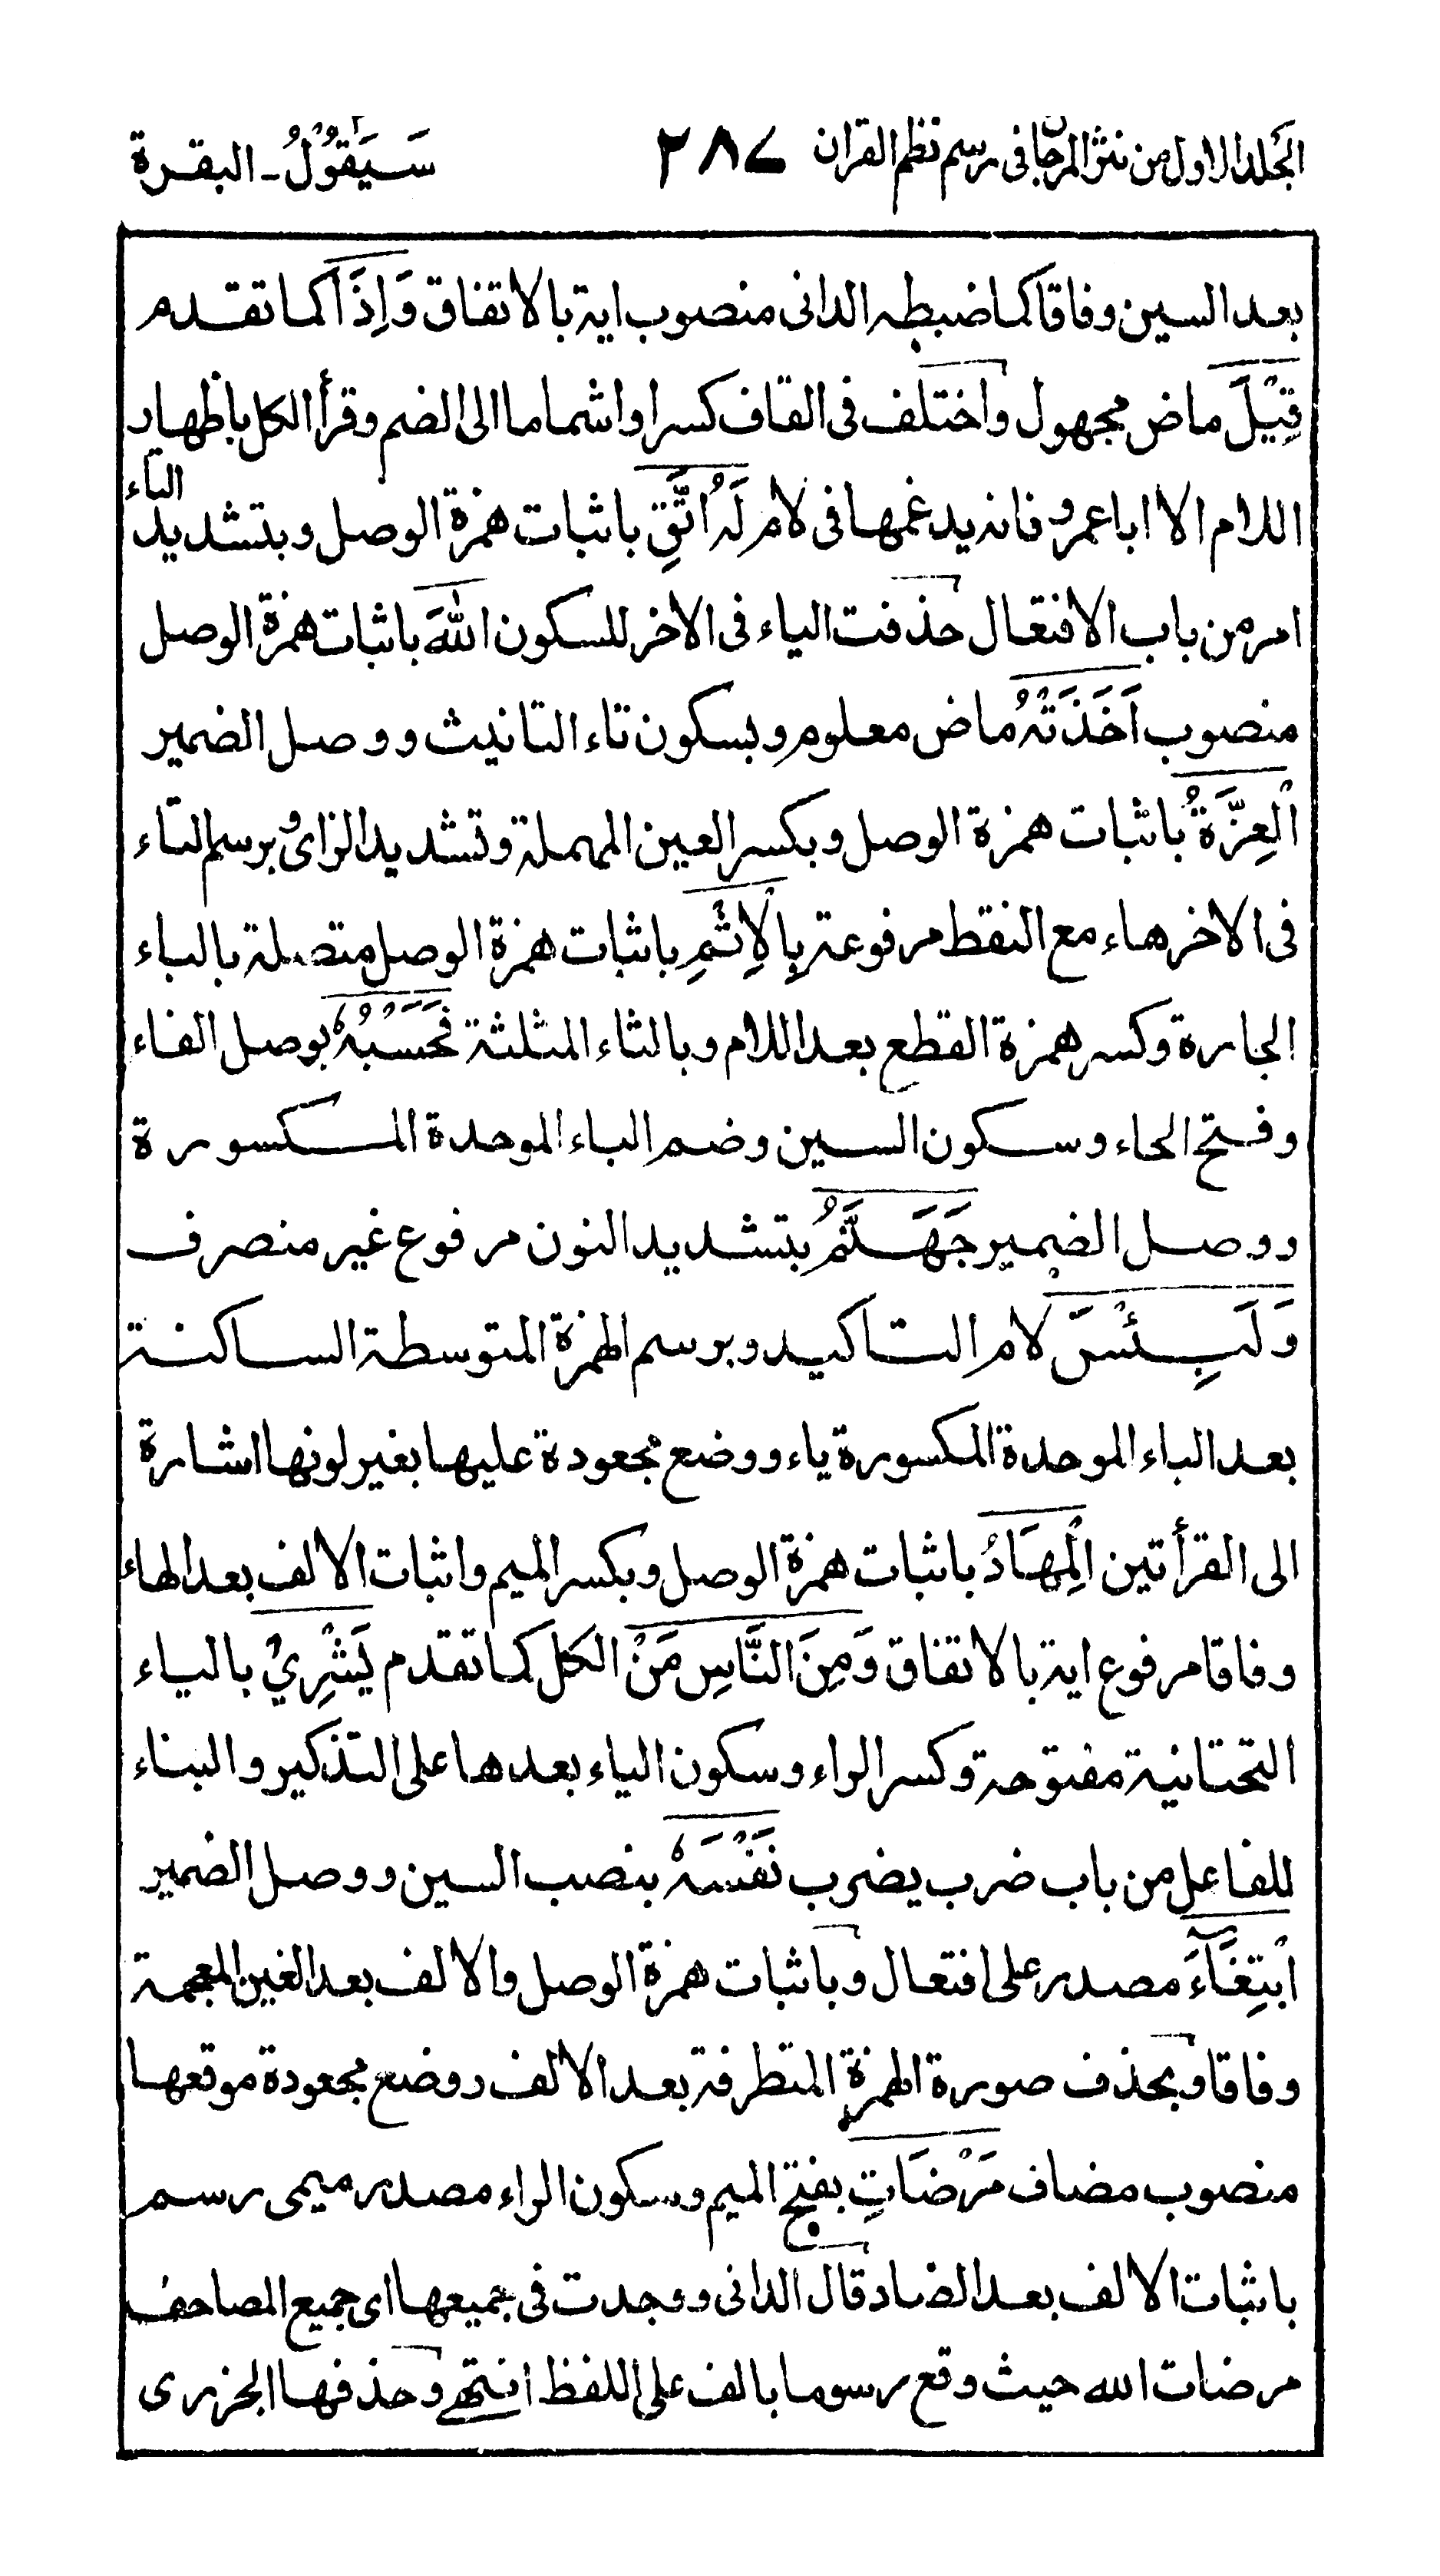 الجلد الاول من نثر المرجان فى رسم نظم القران ٢٨٧ سَيَقُوْلُ - البقرة
بعد السين وفاقا كما ضبطه الدانى منصوب اية بالاتفاق وَاِذَا كما تقدم
قِيْلَ ماض مجهول واختلف فى القاف كسرا واشماما الى الضم وقرأ الكل باظهار
اللام الا ابا عمرو فانه يدغمها فى لام لَهُ اتَّقِ باثبات همزة الوصل وبتشديد التاء
امر من باب الافتعال حذفت الياء فى الاخر للسكون اللّٰهَ باثبات همزة الوصل
منصوب اَخَذَتْهُ ماض معلوم وبسكون تاء التانيث ووصل الضمير
الْعِزَّةُ باثبات همزة الوصل وبكسر العين المهملة وتشديد الزاى وبرسم التاء
فى الاخر هاء مع النقط مرفوعة بِالْاِثْمِ باثبات همزة الوصل متصلة بالباء
الجارة وكسر همزة القطع بعد اللام وبالثاء المثلثة فَحَسْبُهٗ بوصل الفاء
وفتح الحاء وسكون السين وضم الباء الموحدة المكسورة
ووصل الضمير جَهَنَّمُ بتشديد النون مرفوع غير منصرف
وَلَبِئْسَ لام التاكيد وبرسم الهمزة المتوسطة الساكنة
بعد الباء الموحدة المكسورة ياء ووضع مجعودة عليها بغير لونها اشارة
الى القرأتين الْمِهَادُ باثبات همزة الوصل وبكسر الميم واثبات الالف بعد الهاء
وفاقا مرفوع اية بالاتفاق وَمِنَ النَّاسِ مَنْ الكل كما تقدم يَشْرِيْ بالياء
التحتانية مفتوحة وكسر الراء وسكون الياء بعدها على التذكير والبناء
للفاعل من باب ضرب يضرب نَفْسَهٗ بنصب السين ووصل الضمير
ابْتِغَآءَ مصدر على افتعال وباثبات همزة الوصل والالف بعد الغين المعجمة
وفاقا وبحذف صورة الهمزة المتطرفة بعد الالف ووضع مجعودة موقعها
منصوب مضاف مَرْضَاتِ بفتح الميم وسكون الراء مصدر ميمى رسم
باثبات الالف بعد الضاد قال الدانى ووجدت فى جميعها اى جميع المصاحف
مرضات الله حيث وقع رسوما بالف على اللفظ انتهى وحذفها الجزرى